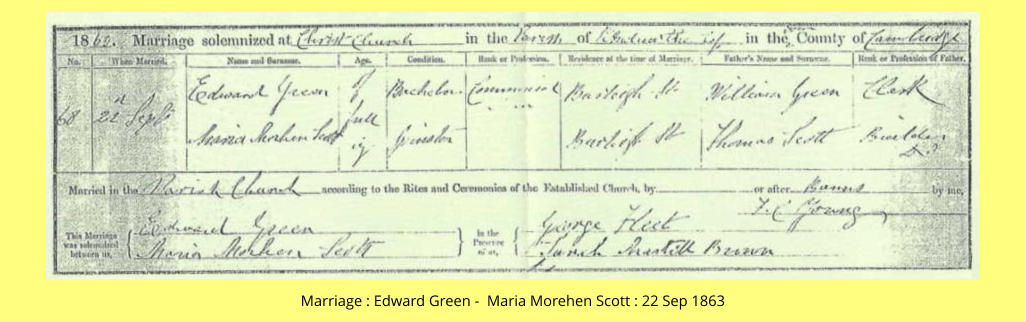 1863. Marriage solemnized at Christ Church in the Parish of St Andrew the Less in the County of Cambridge
No. When Married. Name and Surname. Age. Condition. Rank or Profession. Residence at the time of Marriage. Father's Name and Surname. Rank or Profession of Father.
68 22nd Sept Edward Green of Bachelor Commercial Burleigh St William Green Clerk
full
Maria Morhen Scott age Spinster Burleigh St Thomas Scott Builder
Married in the Parish Church according to the Rites and Ceremonies of the Established Church, by or after Banns by me,
This Marriage was solemnized between us,
Edward Green
Maria Morhen Scott
In the Presence of us,
George Fleet
Sarah Brown
Marriage : Edward Green - Maria Morehen Scott : 22 Sep 1863